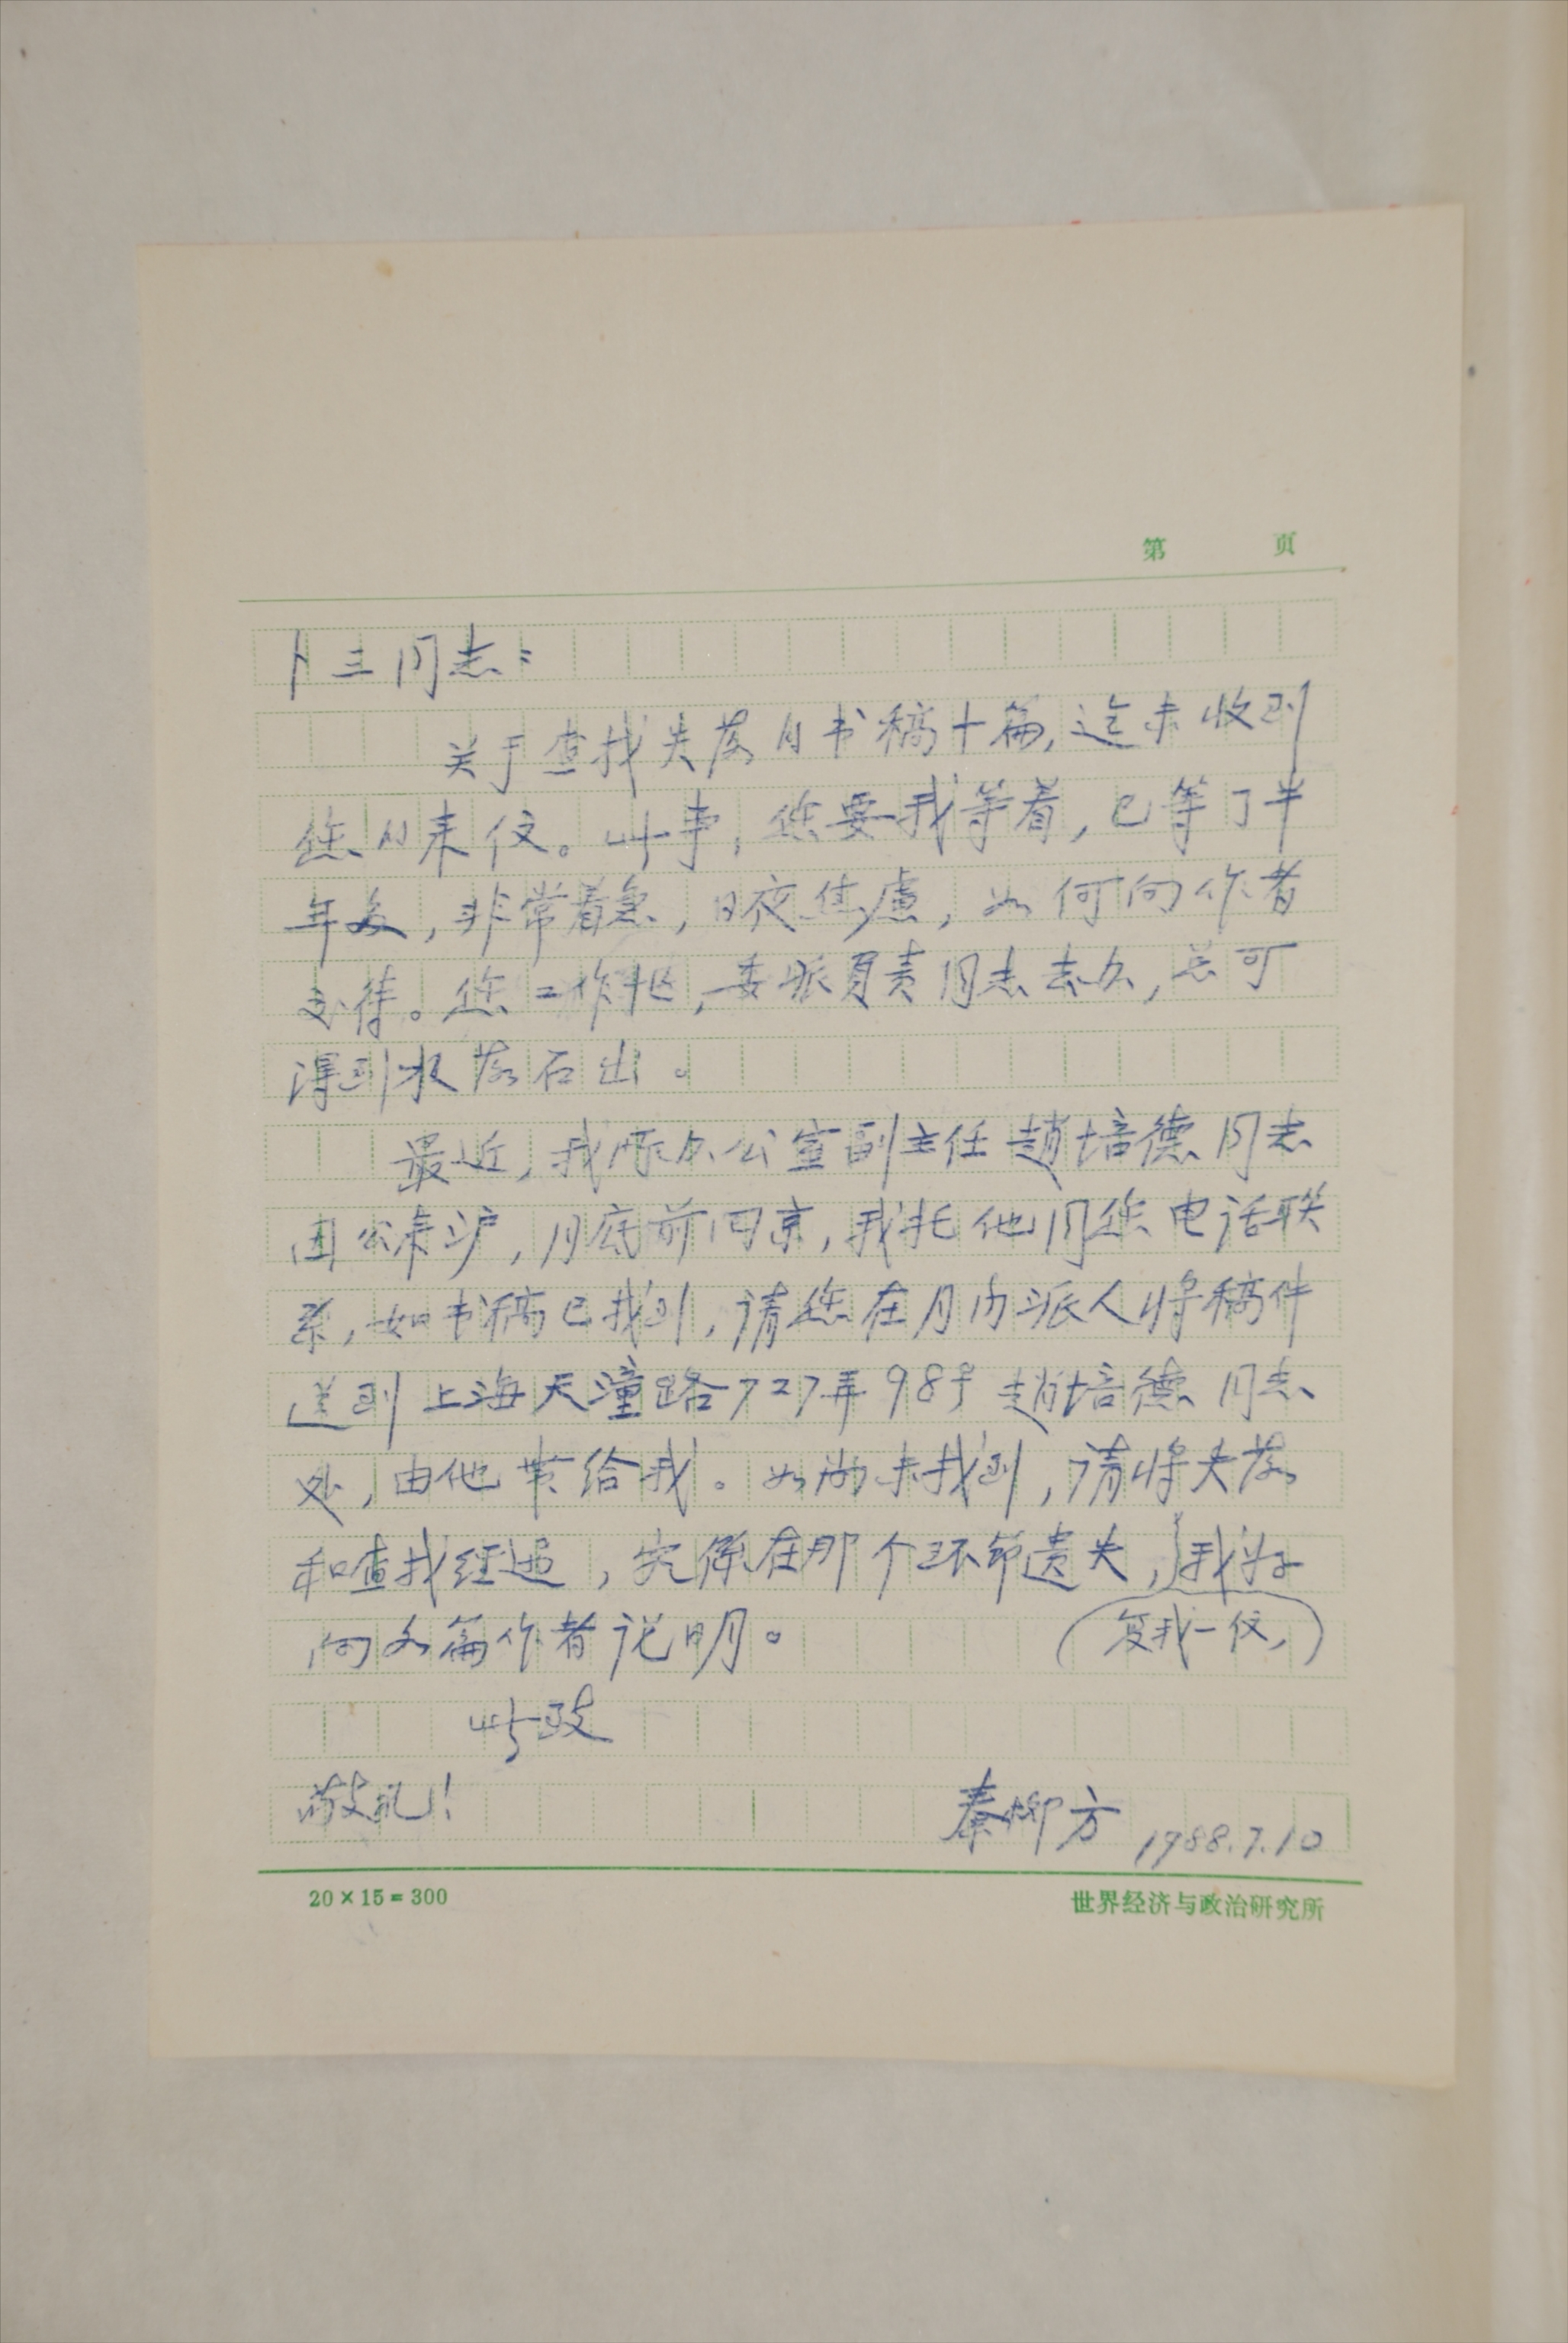 第 页
卜三同志：
关于查找失落的书稿十篇，迄未收到
您的来信。此事，您要我等着，已等了半
年多，非常着急，日夜焦虑，如何向作者
交待。您工作忙，委派负责同志去办，总可
得到水落石出。
最近，我所办公室副主任赵培德同志
因公来沪，月底前回京，我托他同您电话联
系，如书稿已找到，请您在月内派人将稿件
送到上海天潼路727弄98号赵培德同志
处，由他带给我。如尚未找到，请将失落
和查找经过，究系在那个环节遗失，我好
（复我一信，）
向各篇作者说明。
此致
敬礼！
秦柳方 1988.7.10
20×15=300 世界经济与政治研究所